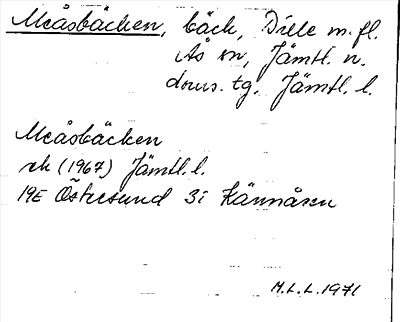 Meåsbäcken, bäck, Dille m.fl.
Ås sn, Jämtl. n.
doms. tg. Jämtl. l.
Meåsbäcken
rk (1967) Jämtl. l.
19E Östersund 3i Kännåsen
M.L.L. 1971